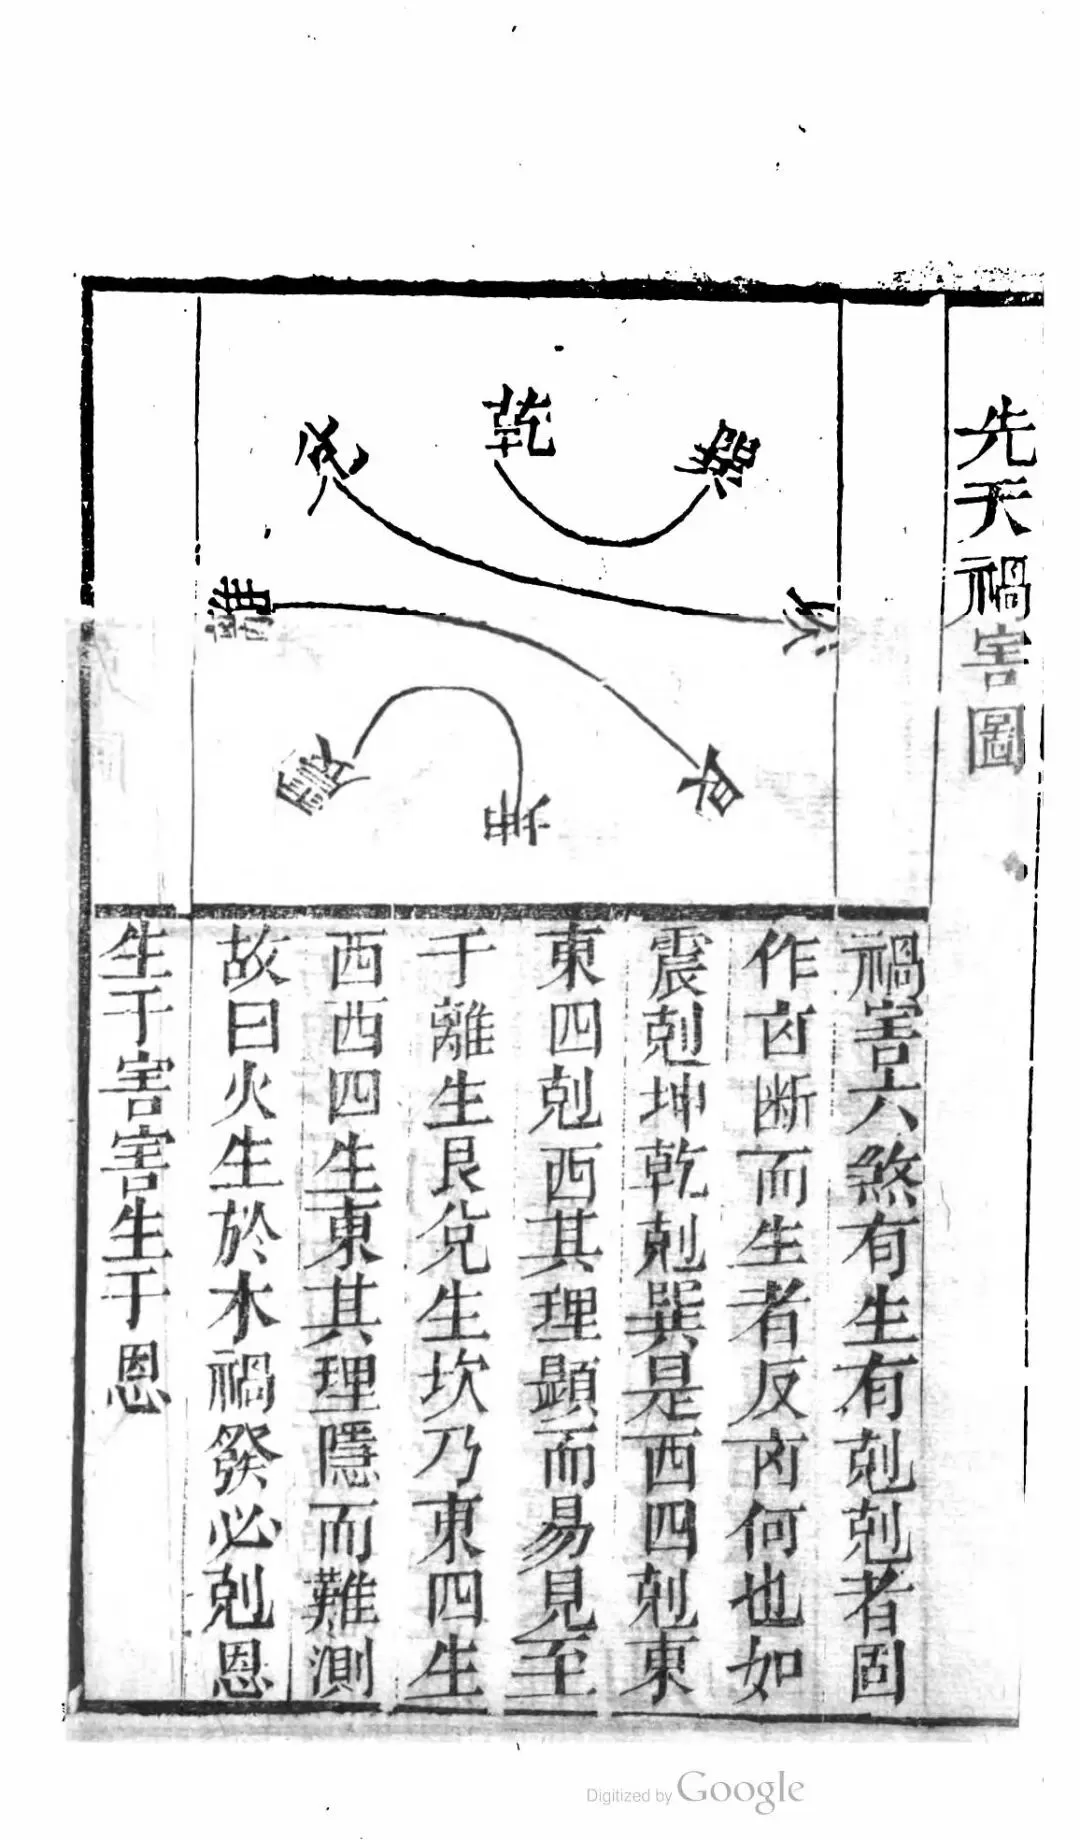 先天禍害圖
乾
巽
兌
坎
離
艮
震
坤
禍害六煞有生有剋剋者固
作卤断而生者反卤何也如
震剋坤乾剋巽是西四剋東
東四剋西其理顕而易見至
于離生艮兌生坎乃東四生
西西四生東其理隱而難測
故曰火生於木禍發必剋恩
生于害害生于恩
Digitized by Google